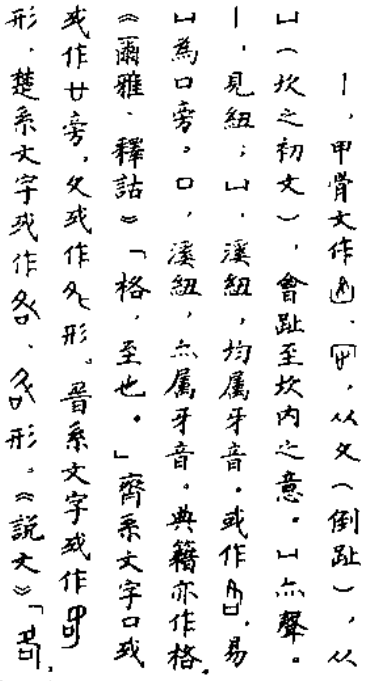 丨，甲骨文作、，从夂（倒趾），从
凵（坎之初文），會趾至坎内之意。凵亦聲。
丨，見紐；凵，溪紐，均属牙音。或作，易
凵為口旁。口，溪紐，亦属牙音。典籍亦作格。
《爾雅·釋詁》「格，至也。」齊系文字口或
或作廿旁，夂或作形。晉系文字或作
形，楚系文字或作、形。《説文》「，